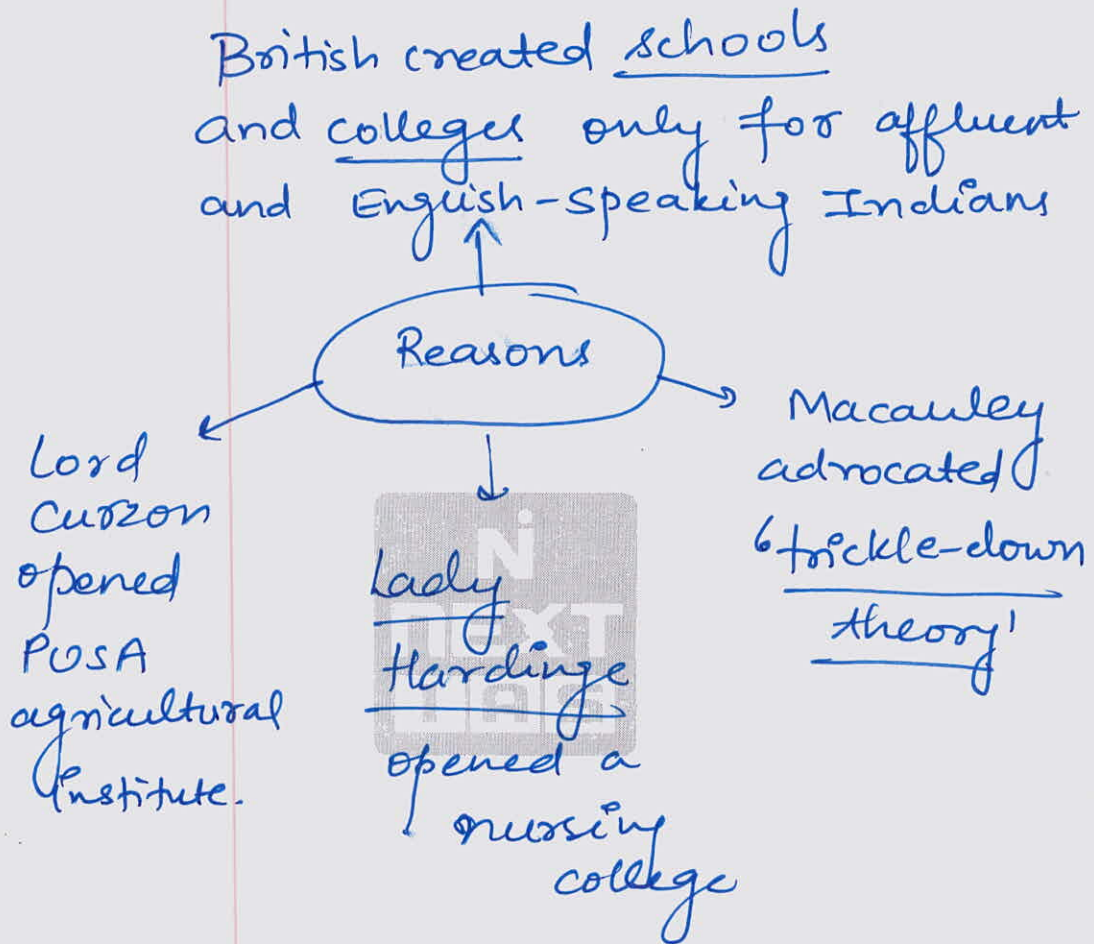 British created schools
and colleges only for affluent
and English-speaking Indians
Reasons
Lord
Curzon
opened
PUSA
agricultural
institute.
Lady
Hardinge
opened a
nursing
college
Macauley
advocated
'trickle-down
theory'
Ni
NEXT
IAS